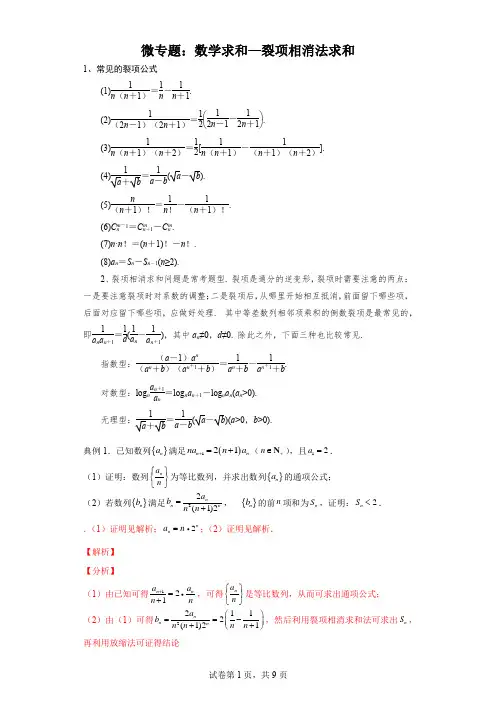 微专题：数学求和—裂项相消法求和
1、常见的裂项公式
(1)1/n（n＋1）＝1/n－1/n＋1.
(2)1/（2n－1）（2n＋1）＝1/2(1/2n－1－1/2n＋1).
(3)1/n（n＋1）（n＋2）＝1/2[1/n（n＋1）－1/（n＋1）（n＋2）].
(4)1/√a＋√b＝1/a－b(√a－√b).
(5)n/（n＋1）！＝1/n！－1/（n＋1）！.
(6)C_n^{m－1}＝C_{n＋1}^m－C_n^m.
(7)n·n！＝(n＋1)！－n！.
(8)a_n＝S_n－S_{n－1}(n≥2).
2．裂项相消求和问题是常考题型．裂项是通分的逆变形，裂项时需要注意的两点：
一是要注意裂项时对系数的调整；二是裂项后，从哪里开始相互抵消，前面留下哪些项，
后面对应留下哪些项，应做好处理． 其中等差数列相邻项乘积的倒数裂项是最常见的，
即1/a_na_{n＋1}＝1/d(1/a_n－1/a_{n＋1})，其中a_n≠0，d≠0. 除此之外，下面三种也比较常见.
指数型：（a－1）a^n/（a^n＋b）（a^{n＋1}＋b）＝1/a^n＋b－1/a^{n＋1}＋b.
对数型：log_a a_{n＋1}/a_n＝log_a a_{n＋1}－log_a a_n(a_n>0).
无理型：1/√a＋√b＝1/a－b(√a－√b)(a>0，b>0).
典例1．已知数列{a_n}满足na_{n+1}=2(n+1)a_n（n∈N_+），且a_1=2．
（1）证明：数列{a_n/n}为等比数列，并求出数列{a_n}的通项公式；
（2）若数列{b_n}满足b_n=2a_n/n²(n+1)2^n， {b_n}的前n项和为S_n，证明：S_n<2．
.（1）证明见解析；a_n=n•2^n；（2）证明见解析．
【解析】
【分析】
（1）由已知可得a_{n+1}/n+1=2•a_n/n，可得{a_n/n}是等比数列，从而可求出通项公式；
（2）由（1）可得b_n=2a_n/n²(n+1)2^n=2(1/n－1/n+1)，然后利用裂项相消求和法可求出S_n，
再利用放缩法可证得结论
试卷第1页，共9页